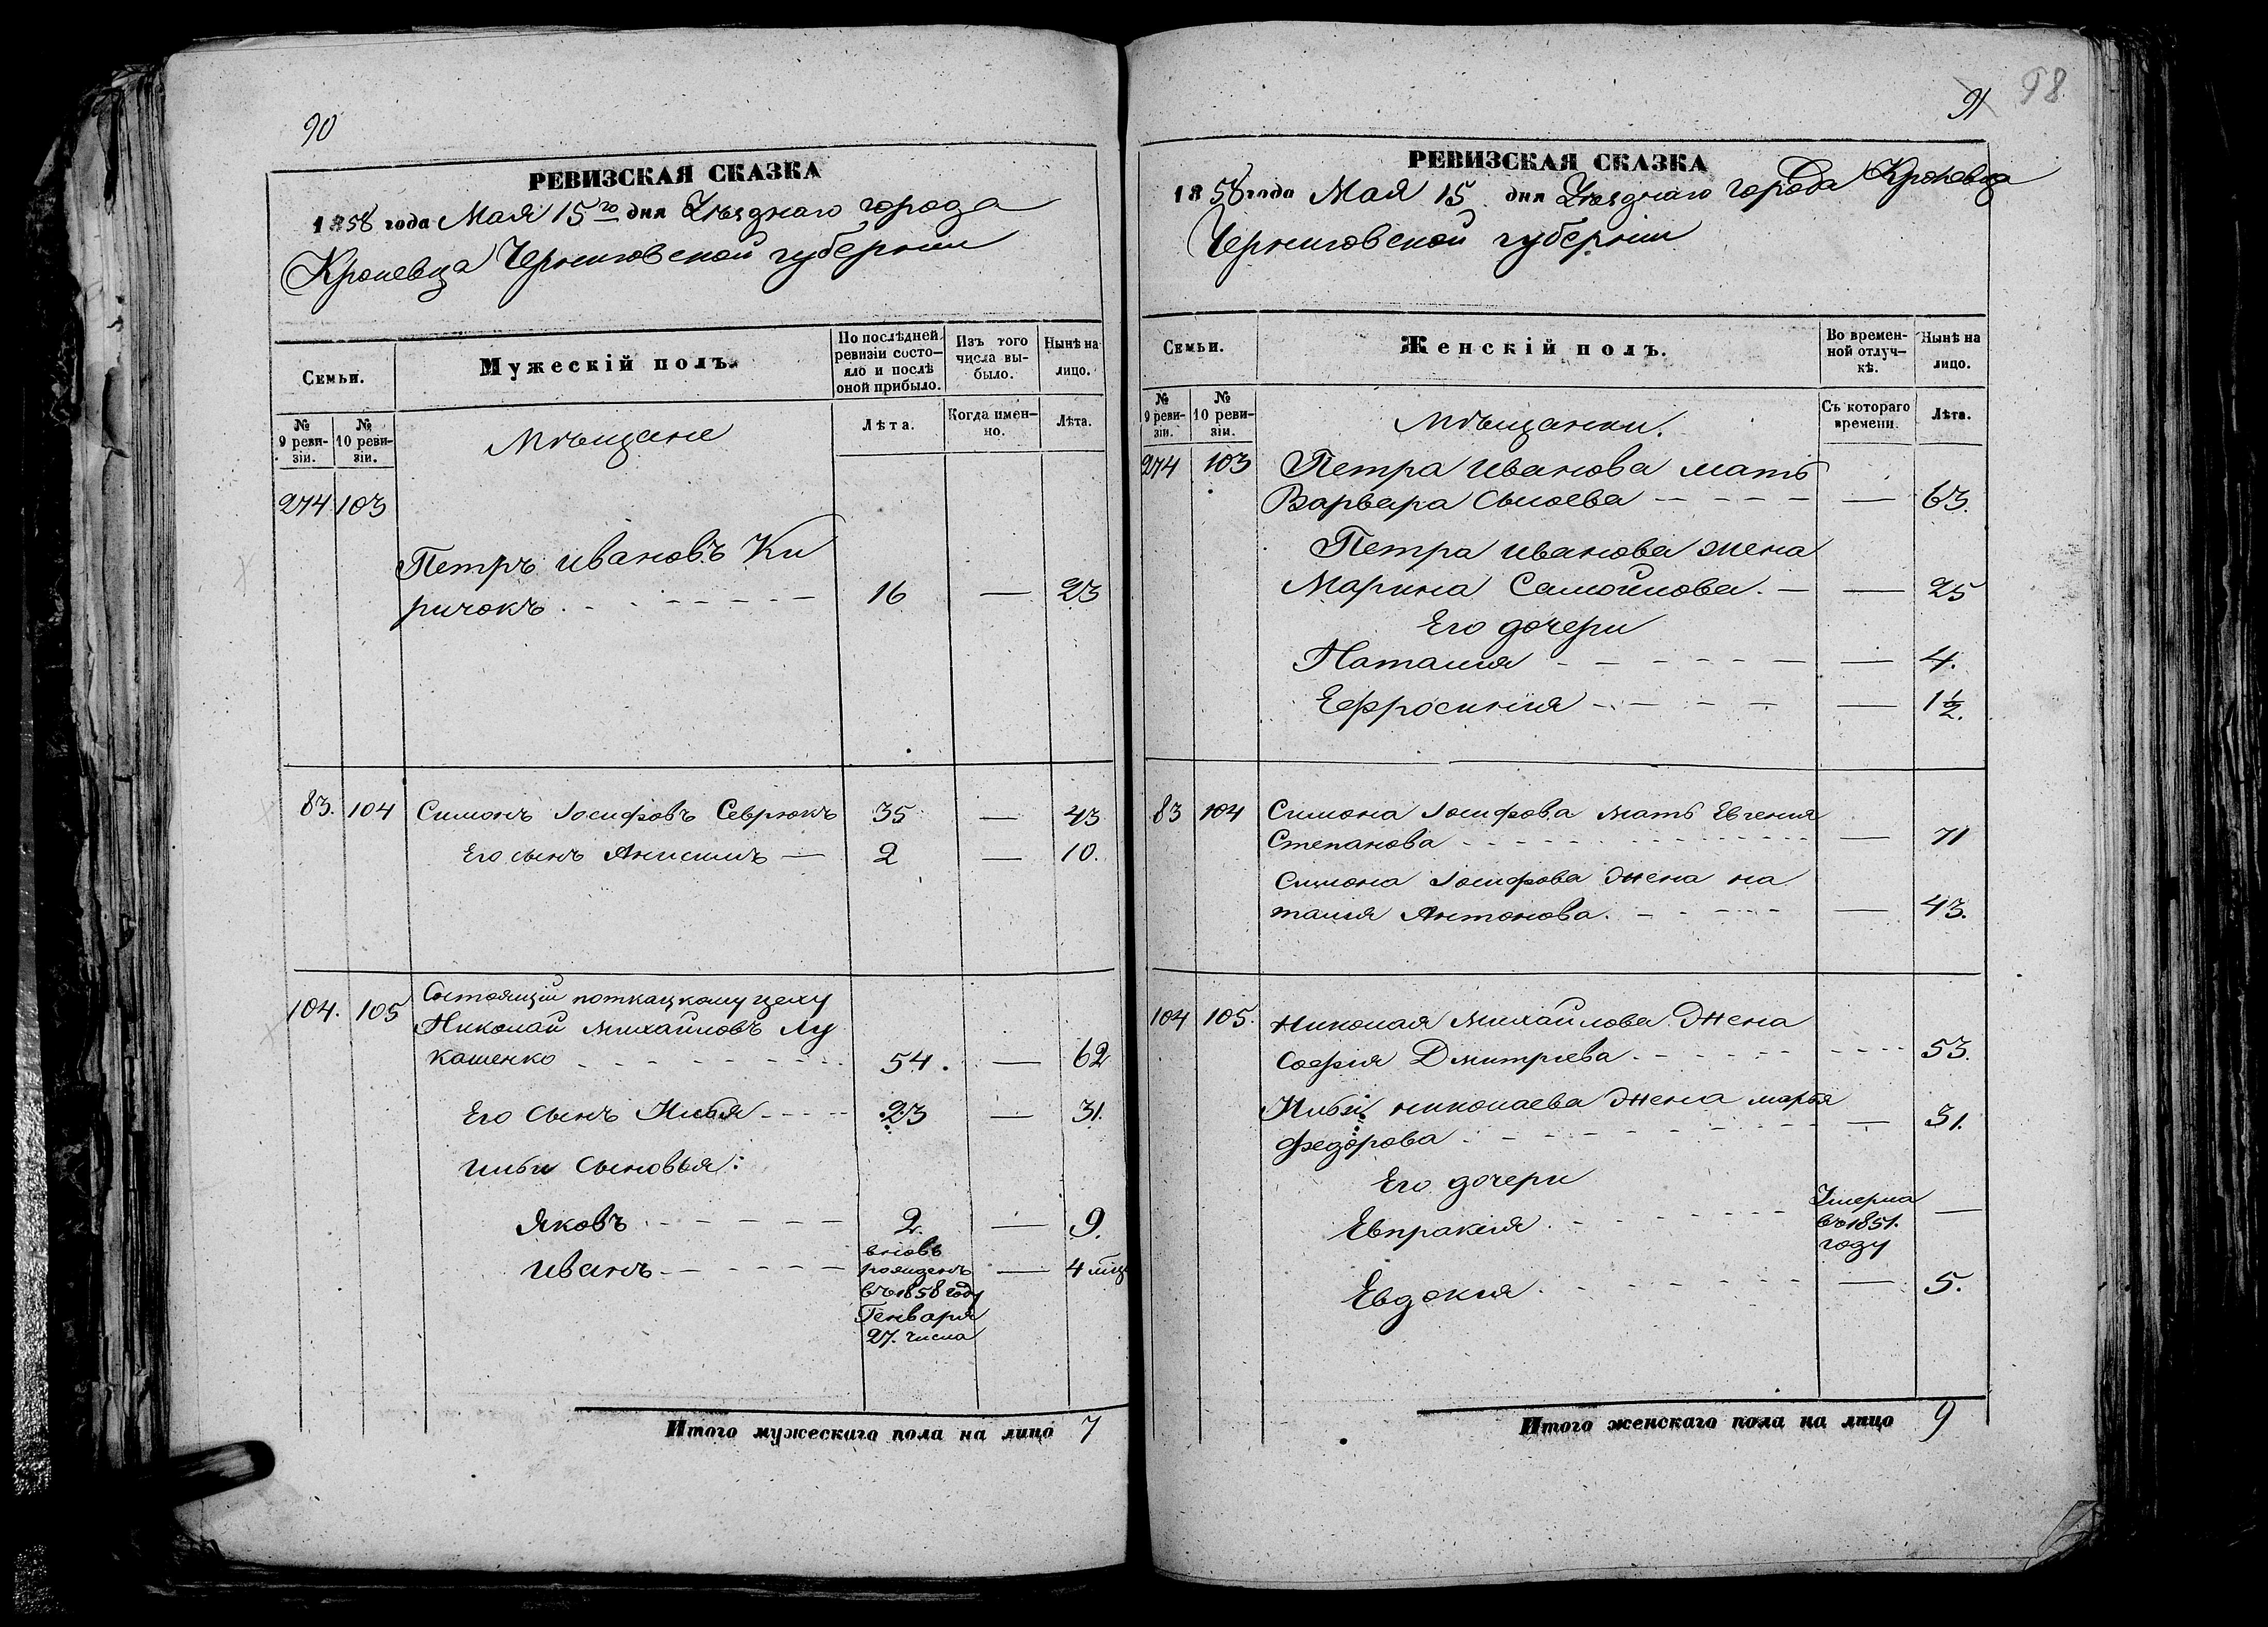 90
РЕВИЗСКАЯ СКАЗКА
1858 года Мая 15го дня Уѣзднаго города
Кролевца Черниговской губернии
Семьи.
Мужескій полъ.
По послѣдней ревизіи состояло и послѣ оной прибыло.
Изъ того числа выбыло.
Нынѣ на лицо.
№ 9 ревизіи.
№ 10 ревизіи.
Мѣщане
Лѣта.
Когда именно.
Лѣта.
274 103
Петръ Ивановъ Ки
ричокъ 16 — 23
83. 104 Симонъ Іосифовъ Севрюкъ 35 — 43
Его сынъ Анисимъ — 2 — 10.
104. 105 Состоящій поткацкому цеху
Николай Михайловъ Лу
кашенко 54. — 62
Его сынъ Илья 23 — 31.
Ильи сыновья:
Яковъ 2. — 9.
Иванъ вновь — 4 мѣц
рожденъ
въ 1858 году
Генваря
27. числа
Итого мужескаго пола на лицо 7
91 98
РЕВИЗСКАЯ СКАЗКА
1858 года Мая 15 дня Уѣзднаго города Кролевца
Черниговской губерніи
Семьи.
Женскій полъ.
Во временной отлучкѣ.
Нынѣ на лицо.
№ 9 ревизіи.
№ 10 ревизіи.
Мѣщанки.
Съ котораго времени.
Лѣта.
274 103 Петра Иванова мать
Варвара Сысоева — 63.
Петра Иванова жена
Марина Самойлова. — 25
Его дочери
Наталия — 4.
Ефросиния — 1½.
83 104 Симона Іосифова мать Евгения
Степанова — 71
Симона Іосифова жена на
талия Антонова. — 43.
104 105. Николая Михайлова жена
София Дмитриева. 53.
Ильи Николаева жена марья
федорова — 31.
Его дочери
Евпракия Умерла —
въ 1851.
году
Евдокия — 5.
Итого женскаго пола на лицо 9